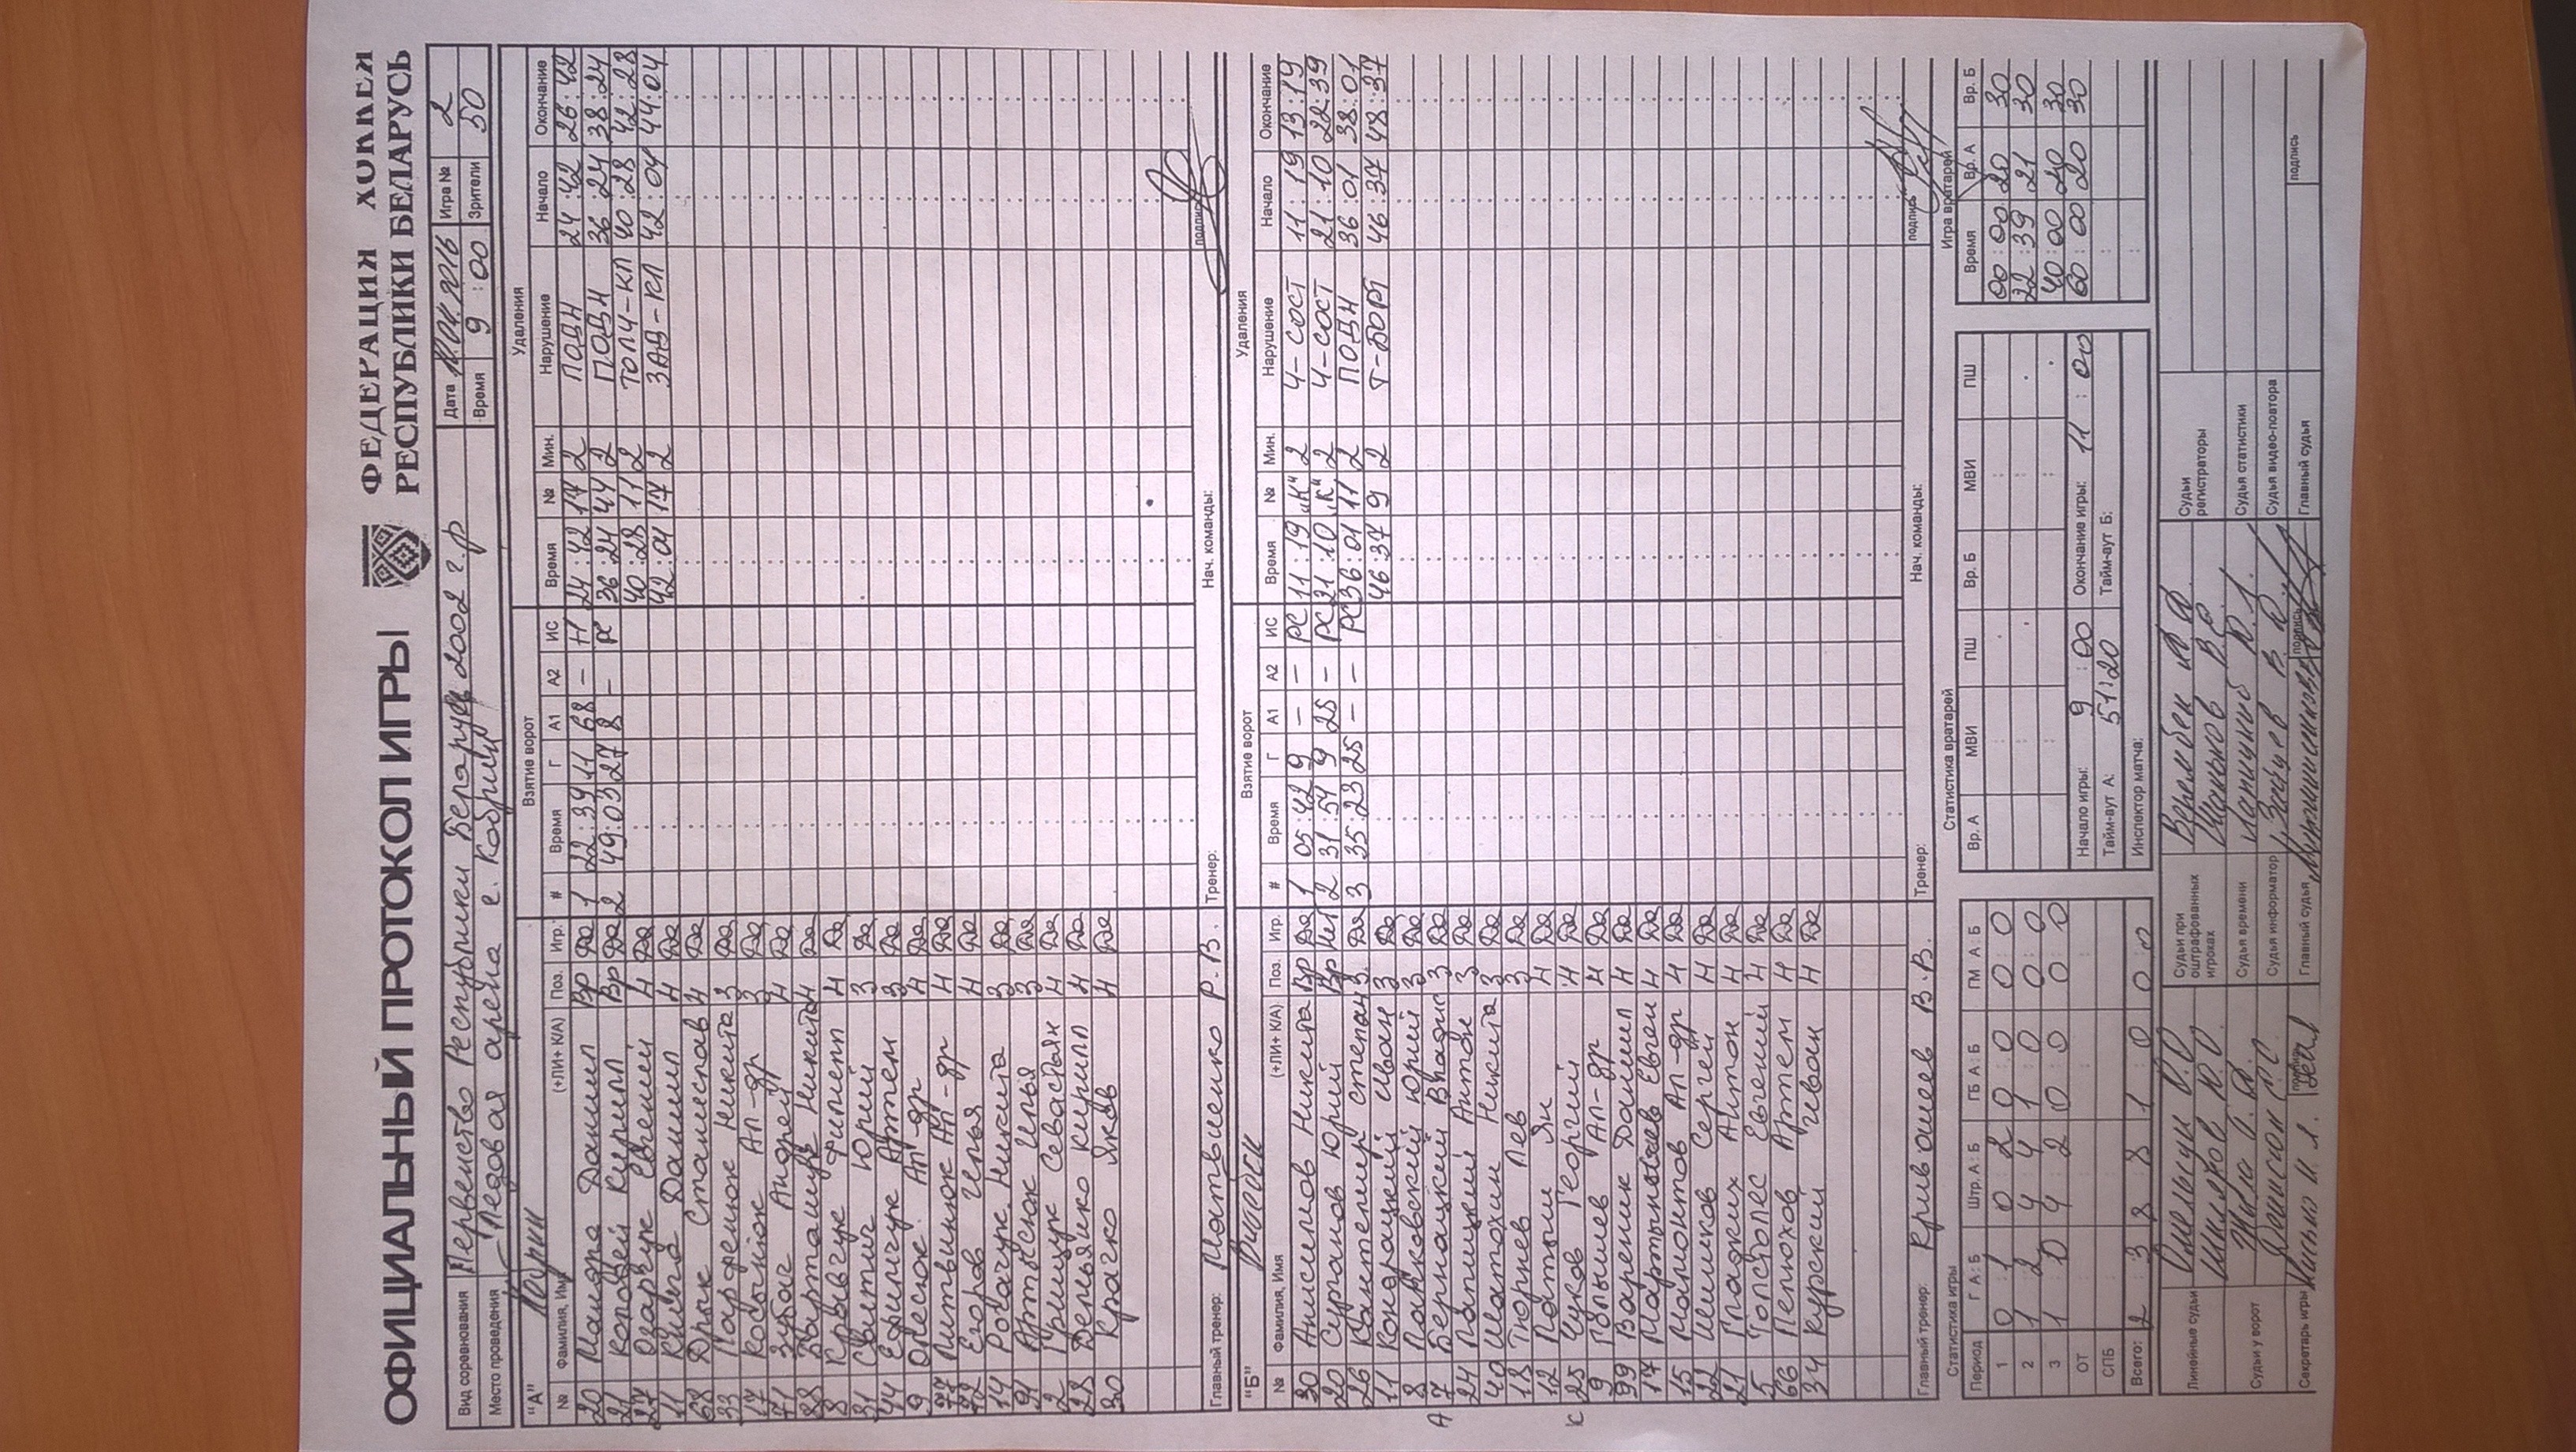 ОФИЦИАЛЬНЫЙ ПРОТОКОЛ ИГРЫ
ФЕДЕРАЦИЯ ХОККЕЯ
РЕСПУБЛИКИ БЕЛАРУСЬ
Вид соревнования Первенство Республики Беларусь 2002 г.р Дата Игра № 2
Место проведения Ледовая арена г. Кобрин Время 9:00 Зрители 50
"А" Взятие ворот Удаления
№ Фамилия, Имя (+ЛИ+ К/А) Поз. Игр. # Время Г А1 А2 ИС Время № Мин. Нарушение Начало Окончание
20 Даниил Вр Да 1 22:39 11 68 – Н 24:42 17 2 ПОДН 24:42 26:42
21 Колодей Кирилл Вр Да 2 49:03 27 8 – РС 36:24 44 2 ПОДН 36:24 38:24
27 Озарчук Евгений Н Да 40:28 11 2 ТОЛЧ-КЛ 40:28 42:28
11 Даниил Н Да 42:04 17 2 ЗАД-КЛ 42:04 44:04
68 Дрык Станислав Н Да
33 Парфенюк Никита З Да
17 Кобынюк Ал-др З Да
71 Зубач Андрей Н Да
88 Барташук Никита Н Да
8 Кравчук Филипп Н Да
31 Свитич Юрий З Да
44 Ефимчук Артем З Да
9 Олесюк Ал-др Н Да
77 Литвинюк Ал-др Н Да
72 Егоров Илья Н Да
14 Рогачук Никита З Да
91 Артысюк Илья З Да
2 Грищук Севастьян Н Да
28 Демьянко Кирилл Н Да
30 Крачко Яков Н Да
Главный тренер: Матвиенко Р.В. Тренер: Нач. команды: подпись
"Б" Взятие ворот Удаления
№ Фамилия, Имя (+ЛИ+ К/А) Поз. Игр. # Время Г А1 А2 ИС Время № Мин. Нарушение Начало Окончание
30 Анисимов Никита Вр Да 1 05:42 9 – – РС 11:19 "К" 2 Ч-СОСТ 11:19 13:19
20 Сурганов Юрий Вр Нет 2 31:54 9 25 – РС 21:10 "К" 2 Ч-СОСТ 21:10 22:39
26 Кантемир Степан З Да 3 35:23 25 – – РС 36:01 11 2 ПОДН 36:01 38:01
11 Кондрацкий Иван З Да 46:37 9 2 Т-БОРТ 46:37 48:37
8 Панковский Юрий З Да
А 7 Бернацкий Владис З Да
24 Антон З Да
40 Шатохин Никита З Да
18 Тюрнев Лев З Да
12 Ян Н Да
К 25 Чуков Георгий Н Да
9 Голышев Ал-др Н Да
99 Вареник Даниил Н Да
17 Евген Н Да
15 Ал-др Н Да
22 Шишков Сергей Н Да
21 Гладких Антон Н Да
5 Толстолес Евгений Н Да
66 Пелюхов Артем Н Да
34 Курский Иван Н Да
Главный тренер: Кривошеев В.В. Тренер: Нач. команды: подпись
Статистика игры Статистика вратарей Игра вратарей
Период Г А : Б Штр. А : Б ГБ А : Б ГМ А : Б Вр. А МВИ ПШ Вр. Б МВИ ПШ Время Вр. А Вр. Б
1 0:1 0:2 0:0 0:0 00:00 20 30
2 1:2 4:4 1:0 0:0 22:39 21 30
3 1:0 4:2 0:0 0:0 40:00 20 30
ОТ Начало игры: 9:00 Окончание игры: 11:00 60:00 20 30
СПБ Тайм-аут А: 51:20 Тайм-аут Б:
Всего: 2:3 8:8 1:0 0:0 Инспектор матча:
Линейные судьи Судьи при оштрафованных игроках Судьи регистраторы
Судьи у ворот Судья времени Судья статистики
Судья информатор Судья видео-повтора
Секретарь игры подпись Главный судья подпись Главный судья подпись